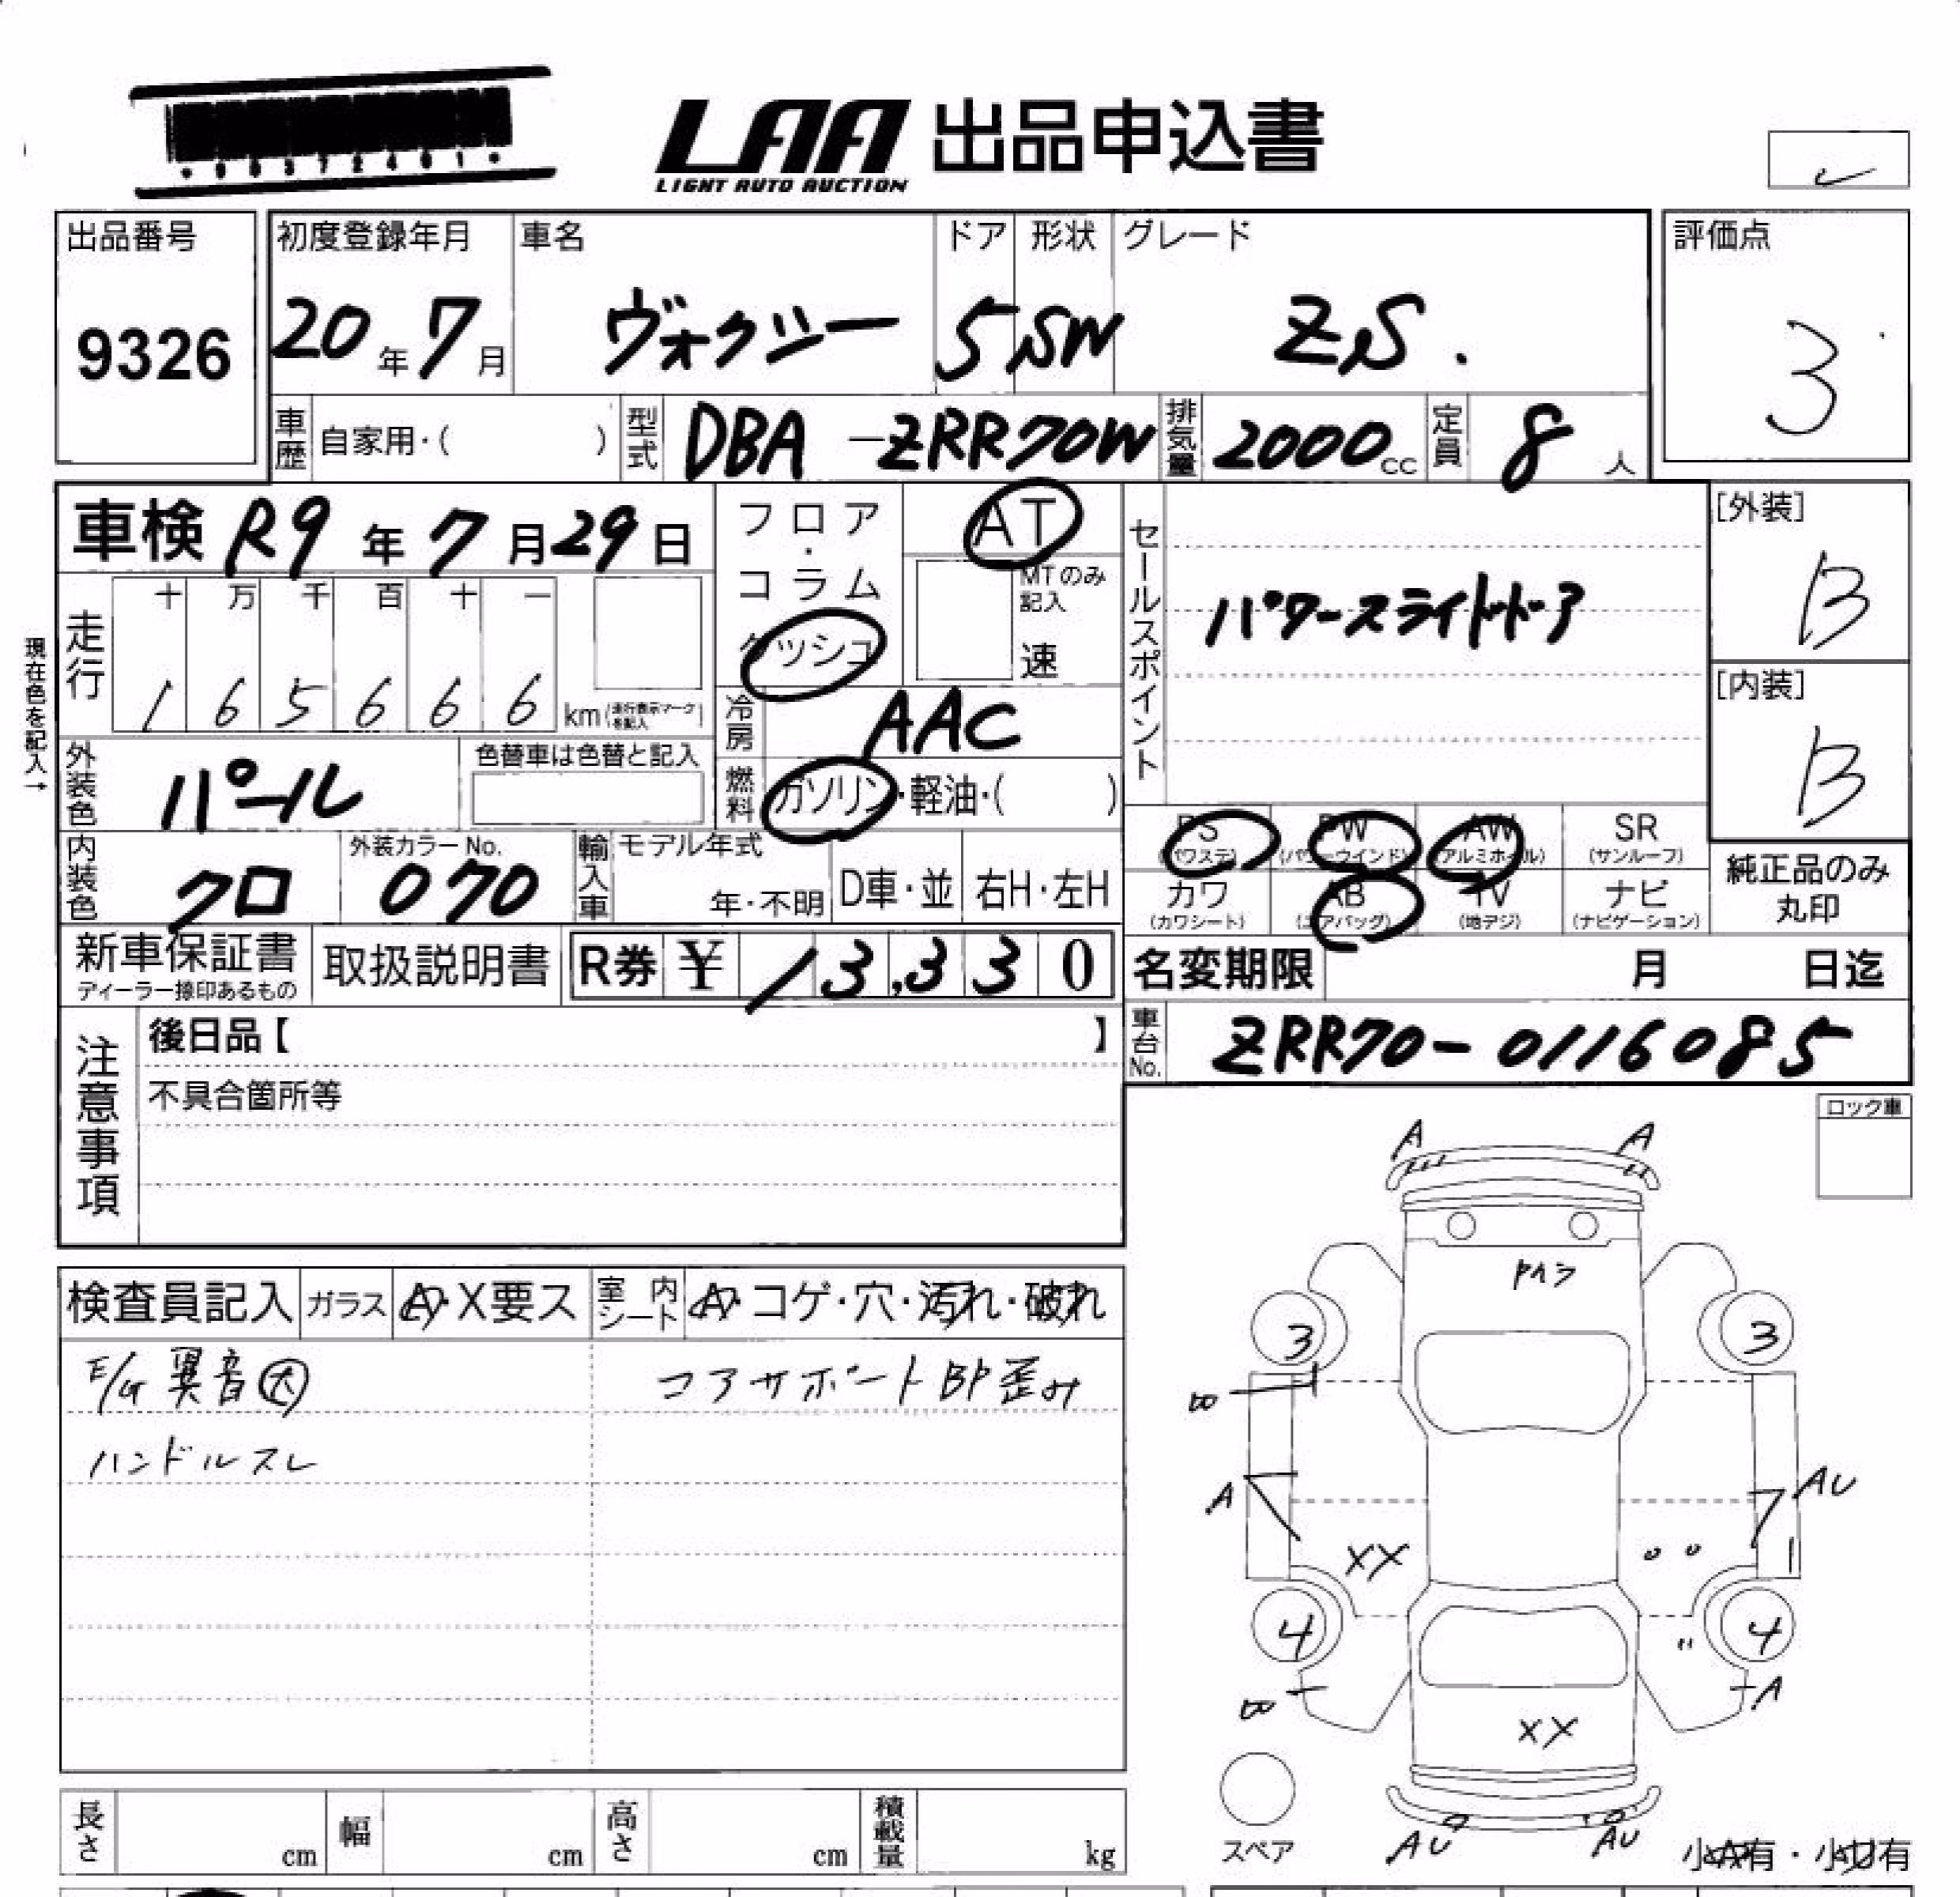 LAA 出品申込書
LIGHT AUTO AUCTION
出品番号
9326
初度登録年月
20年7月
車名
ヴォクシー
ドア
5
形状
SW
グレード
ZS.
評価点
3
車歴 自家用・( )
型式 DBA-ZRR70W
排気量 2000cc
定員 8人
車検 R9年7月29日
フロア・コラム
ダッシュ
AT
MTのみ記入
速
セールスポイント
パワースライドドア
[外装]
B
[内装]
B
現在色を記入→
走行
十 万 千 百 十 一
1 6 5 6 6 6 km(走行表示マークを記入)
冷房 AAC
燃料 ガソリン・軽油・( )
外装色 パール
色替車は色替と記入
内装色 クロ
外装カラーNo.
070
輸入車
モデル年式
年・不明
D車・並
右H・左H
PS (パワステ)
PW (パワーウインド)
AW (アルミホイル)
SR (サンルーフ)
カワ (カワシート)
AB (エアバッグ)
TV (地デジ)
ナビ (ナビゲーション)
純正品のみ
丸印
新車保証書
ディーラー捺印あるもの
取扱説明書
R券 ¥ 13,330
名変期限 月 日迄
車台No. ZRR70-0116085
注意事項
後日品【 】
不具合箇所等
ロック車
検査員記入
ガラス A・X要ス
室内シート A・コゲ・穴・汚れ・破れ
E/G 異音大
コアサポートBP歪み
ハンドルスレ
A A
3 3
B
A AU
XX
4 4
B A
XX
スペア
AU AU
小A有・小U有
長さ cm
幅 cm
高さ cm
積載量 kg